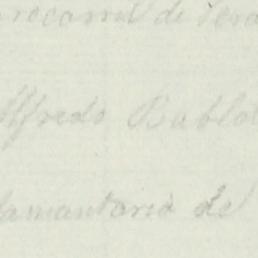 rrocarril de Vera
Alfredo Bablot
lamentaria del